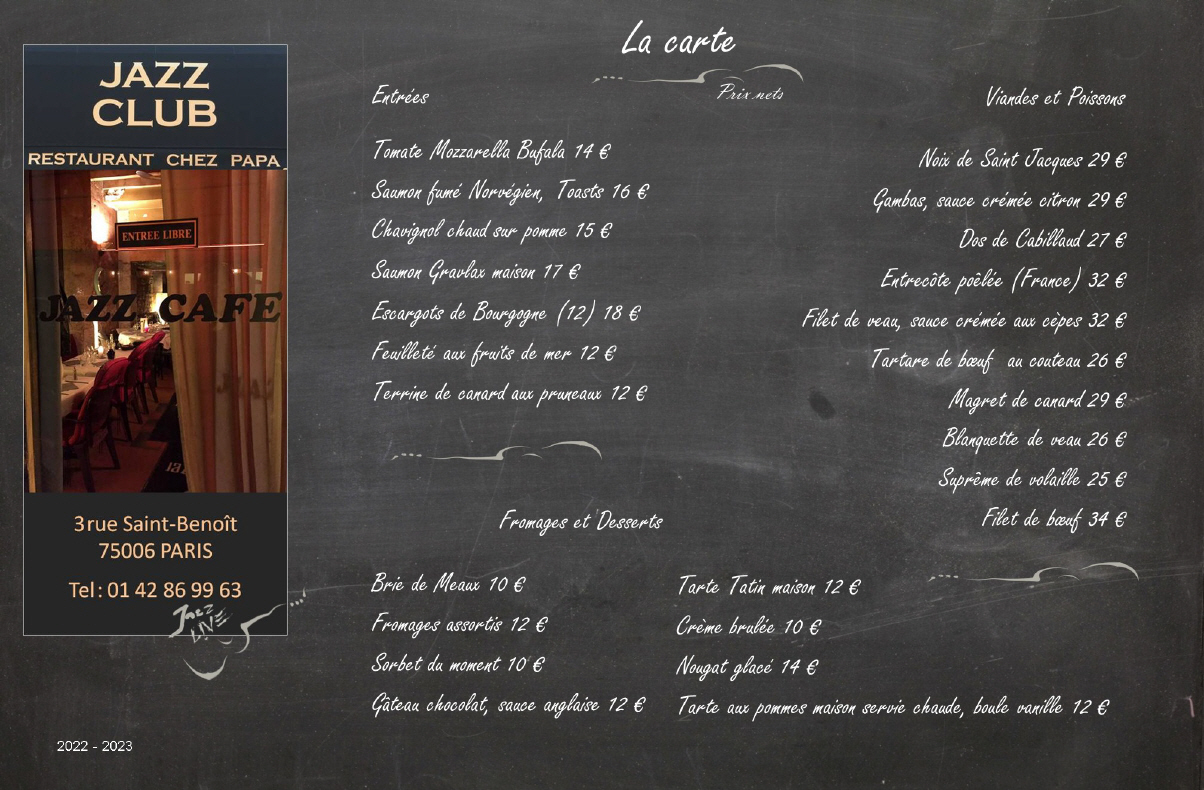 La carte
Prix nets
JAZZ
CLUB
RESTAURANT CHEZ PAPA
ENTREE LIBRE
JAZZ CAFE
3 rue Saint-Benoît
75006 PARIS
Tel : 01 42 86 99 63
JaZZ
LIVE
2022 - 2023
Entrées
Tomate Mozzarella Bufala 14 €
Saumon fumé Norvégien, Toasts 16 €
Chavignol chaud sur pomme 15 €
Saumon Gravlax maison 17 €
Escargots de Bourgogne (12) 18 €
Feuilleté aux fruits de mer 12 €
Terrine de canard aux pruneaux 12 €
Viandes et Poissons
Noix de Saint Jacques 29 €
Gambas, sauce crémée citron 29 €
Dos de Cabillaud 27 €
Entrecôte poêlée (France) 32 €
Filet de veau, sauce crémée aux cèpes 32 €
Tartare de bœuf au couteau 26 €
Magret de canard 29 €
Blanquette de veau 26 €
Suprême de volaille 25 €
Filet de bœuf 34 €
Fromages et Desserts
Brie de Meaux 10 €
Fromages assortis 12 €
Sorbet du moment 10 €
Gâteau chocolat, sauce anglaise 12 €
Tarte Tatin maison 12 €
Crème brulée 10 €
Nougat glacé 14 €
Tarte aux pommes maison servie chaude, boule vanille 12 €